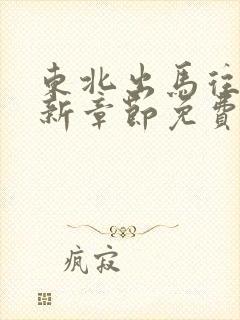 東北出馬往
新章節免費
瘋寂